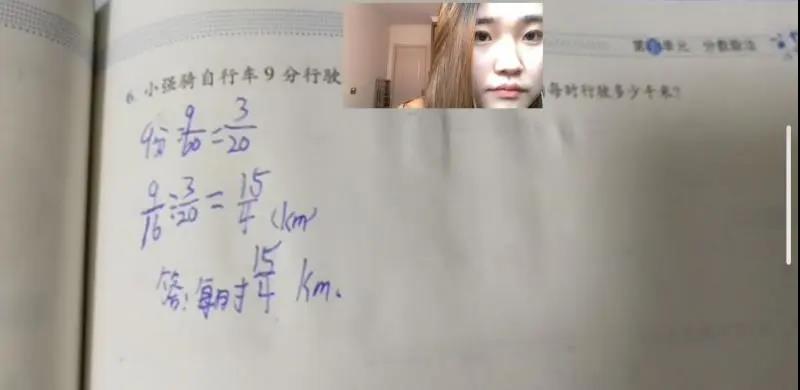 第 单元 分数除法
6. 小强骑自行车9分行驶
每时行驶多少千米?
9分=9/60=3/20
9/16÷3/20=15/4(km)
答:每时15/4 km.